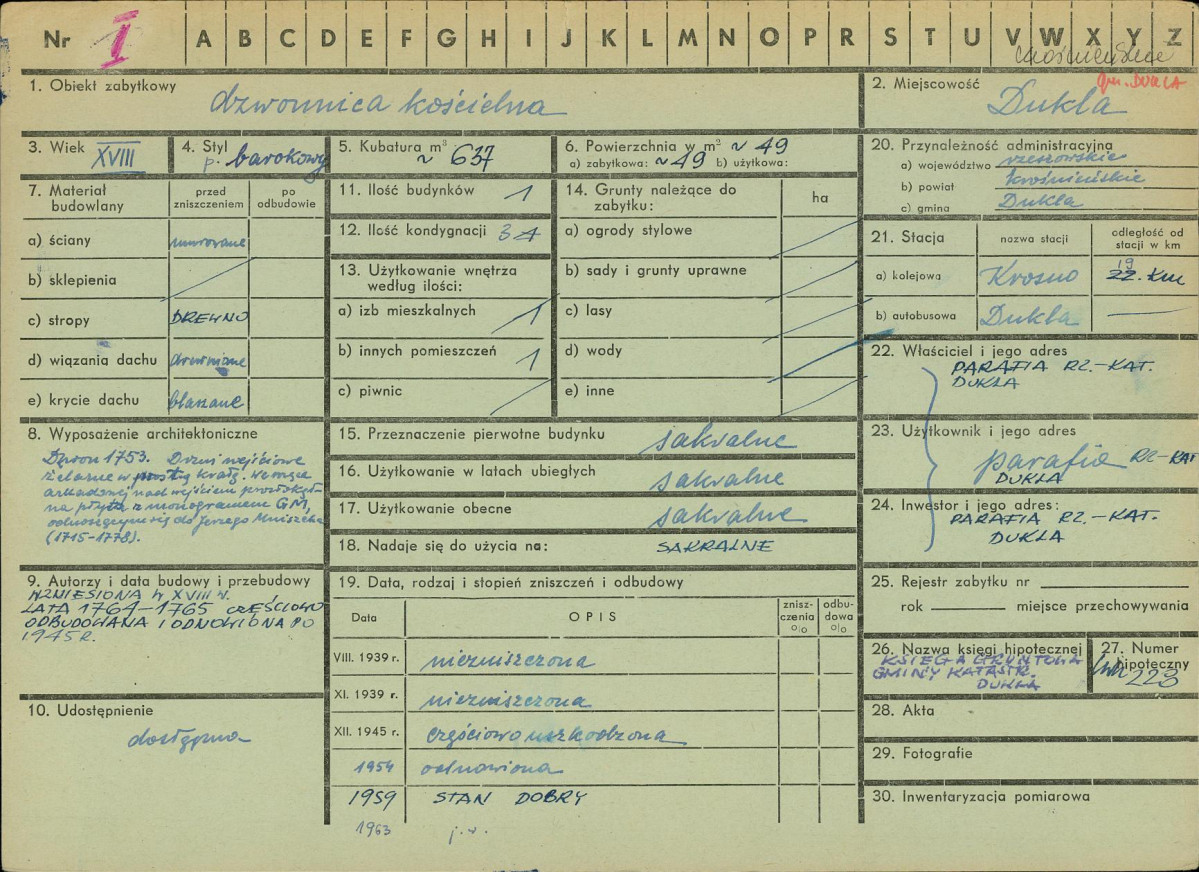 Nr I A B C D E F G H I J K L M N O P R S T U V W X Y Z
krośnieńskie
gm. DUKLA
1. Obiekt zabytkowy
dzwonnica kościelna
2. Miejscowość
Dukla
3. Wiek
XVIII
4. Styl
p. barokowy
5. Kubatura m³
~ 637
6. Powierzchnia w m² ~ 49
a) zabytkowa: ~49 b) użytkowa:
7. Materiał budowlany
przed zniszczeniem
po odbudowie
a) ściany murowane
b) sklepienia
c) stropy DREWNO
d) wiązania dachu drewniane
e) krycie dachu blaszane
8. Wyposażenie architektoniczne
Dzwon 1753. Drzwi wejściowe
żelazne w prostą kratę. We wnęce
arkadowej nad wejściem prostokąt-
na płyta z monogramem GM,
odnoszącym się do Jerzego Mniszcha
(1715-1778).
9. Autorzy i data budowy i przebudowy
WZNIESIONA W XVIII W.
LATA 1764-1765 CZĘŚCIOWO
ODBUDOWANA I ODNOWIONA PO
1945 R.
10. Udostępnienie
dostępna
11. Ilość budynków 1
12. Ilość kondygnacji 3 1
13. Użytkowanie wnętrza
według ilości:
a) izb mieszkalnych
b) innych pomieszczeń 1
c) piwnic
14. Grunty należące do
zabytku:
ha
a) ogrody stylowe
b) sady i grunty uprawne
c) lasy
d) wody
e) inne
15. Przeznaczenie pierwotne budynku sakralne
16. Użytkowanie w latach ubiegłych sakralne
17. Użytkowanie obecne sakralne
18. Nadaje się do użycia na: SAKRALNE
19. Data, rodzaj i stopień zniszczeń i odbudowy
Data
OPIS
znisz-
czenia
%
odbu-
dowa
%
VIII. 1939 r. niezniszczona
XI. 1939 r. niezniszczona
XII. 1945 r. częściowo uszkodzona
1954 odnowiona
1959 STAN DOBRY
1963 j.w.
20. Przynależność administracyjna
a) województwo rzeszowskie
b) powiat krośnieńskie
c) gmina Dukla
21. Stacja
nazwa stacji
odległość od
stacji w km
a) kolejowa Krosno 19 22. km
b) autobusowa Dukla
22. Właściciel i jego adres
PARAFIA RZ.-KAT.
DUKLA
23. Użytkownik i jego adres
parafia RZ-KAT
DUKLA
24. Inwestor i jego adres:
PARAFIA RZ.-KAT.
DUKLA
25. Rejestr zabytku nr
rok miejsce przechowywania
26. Nazwa księgi hipotecznej
KSIĘGA GRUNTOWA
GMINY KATASTR.
DUKLA
27. Numer
hipoteczny
lwh 223
28. Akta
29. Fotografie
30. Inwentaryzacja pomiarowa